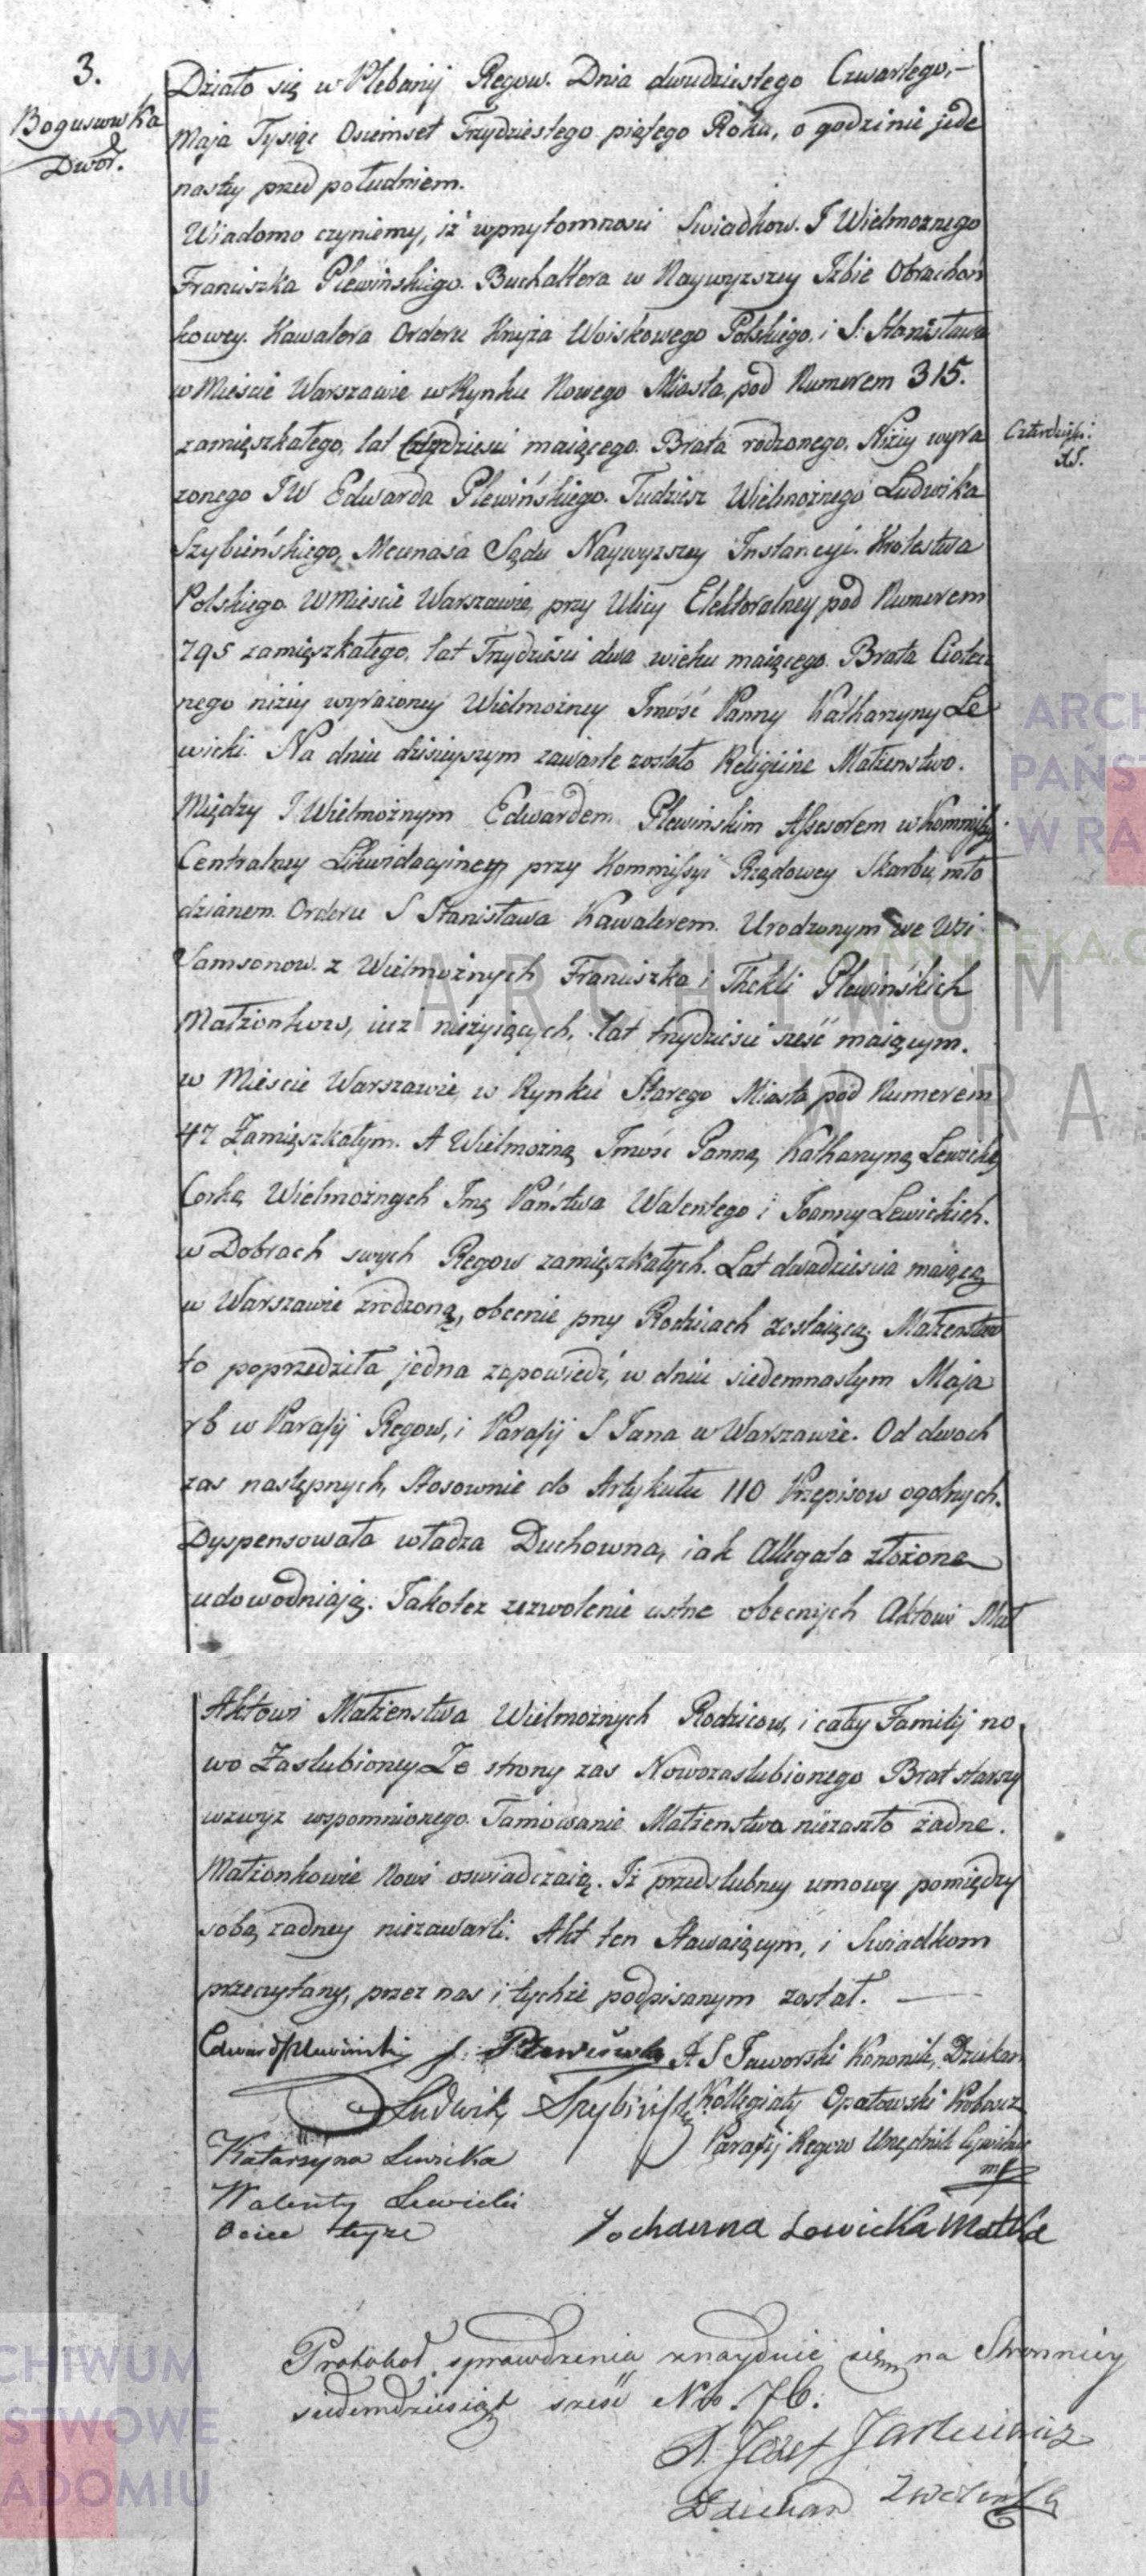 3.
Bogusowka
Dwór.
Działo się w Plebanij Regow. Dnia dwudziestego Czwartego,
Maja Tysiąc Osiemset Trzydziestego piątego Roku, o godzinie jede
nastey przed południem.
Wiadomo czyniemy, iż wprzytomnosci Swiadkow. J Wielmoznego
Franciszka Plewinskiego. Buchaltera w Naywyzszey Izbie Obrachon
kowey. Kawalera Orderu Krzyża Woiskowego Polskiego, i S: Stanisława
w Mieście Warszawie w Rynku Nowego Miasta, pod Numerem 315.
zamięszkałego, lat maiącego. Brata rodzonego. Niżey wyra
Czterdziści
zonego JW Edwarda Plewińskiego. Tudziesz Wielmożnego Ludwika
Szybińskiego, Mecenasa Sądu Naywyzszey Instancyi. Krolestwa
Polskiego. W Mieście Warszawie, przy Ulicy Elektoralney pod Numerem
795 zamięszkałego, lat Trzydzieści dwa wieku maiącego. Brata Ciotecz
nego niżey wyrażoney Wielmożney Imość Panny Katharzyny Le
wicki. Na dniu dzisieyszym zawarte zostało Religiine Małżenstwo.
Między J Wielmożnym Edwardem Plewinskim Assesorem w Kommissyi
Centralney Likwidacyiney przy Kommissyi Rządowey Skarbu, mło
dzianem. Orderu S Stanisława Kawalerem. Urodzonym we Wsi
Samsonow. z Wielmożnych Franciszka i Thekli Plewińskich
Małżonkow, iuż nieżyiących, lat trzydzieści sześć maiącym.
w Mieście Warszawie, w Rynku Starego Miasta pod Numerem
47 Zamięszkałym. A Wielmożną Imość Panną Katharzyną Lewicką
Corką Wielmożnych Imę Państwa Walentego i Joanny Lewickich.
w Dobrach swych Regow zamięszkałych. Lat dwadzieścia maiącą
w Warszawie zrodzoną, obecnie przy Rodzicach zostaiącą; Małżenstwo
to poprzedziła jedna zapowiedź, w dniu siedemnastym Maja
rb w Parafij Regow, i Parafij S Jana w Warszawie. Od dwoch
zas następnych, Stosownie do Artykułu 110 Przepisow ogolnych.
Dyspensowała władza Duchowna, iak Allegata złożone
udowodniaią. Takoież zezwolenie ustne obecnych Aktowi Mał
Aktowi Małżenstwa Wielmożnych Rodzicow, i cały Familij no
wo Zaslubioney Ze strony zas Nowozaslubionego Brat starszy
wzwyż wspomnionego. Tamowanie Małżenstwa niezaszło żadne.
Małżonkowie Nowi oswiadczaią. Iż przedslubney umowy pomiędzy
sobą żadney niezawarli. Akt ten Stawaiącym, i Swiadkom
przeczytany, przez nas i tychże podpisanym został.
Edward Plewinski J. Plewiński X S Jaworski Kanonik, Dziekan
Ludwik Szybiński Kollegiaty Opatowski Proboszcz
Parafij Regow Urzędnik Cywilny
mp
Katarzyna Lewicka
Walenty Lewicki
Ociec teyże
Jochanna Lewicka Matka
Protokoł sprawdzenia znayduie się na Stronnicy
siedemdziesiąt sześć Nro. 76.
X. Józef
Dziekan Zwoleński
ARCHIWUM
PAŃSTWOWE
W RADOMIU